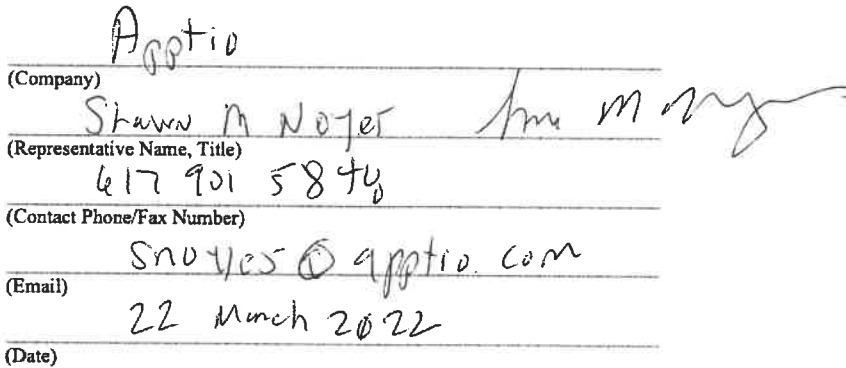 Apptio
(Company)
Shawn M Noyes
(Representative Name, Title)
617 901 58
(Contact Phone/Fax Number)
snoyes@apptio.com
(Email)
22 March 2022
(Date)